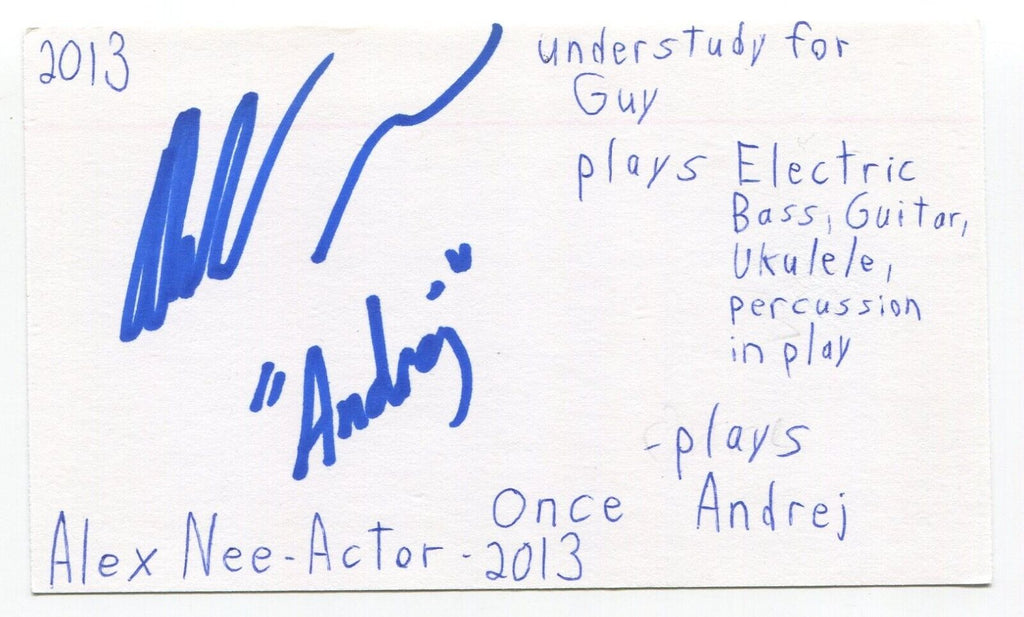 2013
understudy for
Guy
plays Electric
Bass, Guitar,
Ukulele,
percussion
in play
"Andrej"
-plays
Once Andrej
Alex Nee-Actor-2013